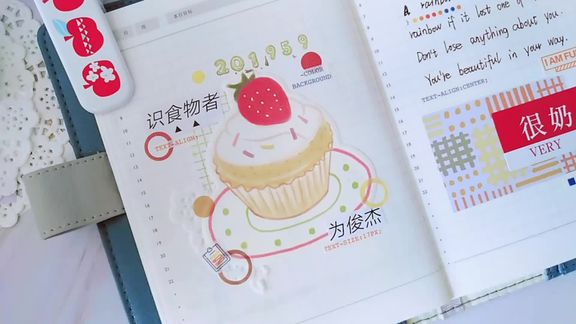 201959
识食物者
TEXT-ALIGN:
-COLOR
BACKGROUND
为俊杰
TEXT-SIZE:17PX;
A rainbow
rainbow if it lost one of
Don't lose anything about you.
You're beautiful in your way.
TEXT-ALIGN:CENTER;
I AM FU
很奶
VERY